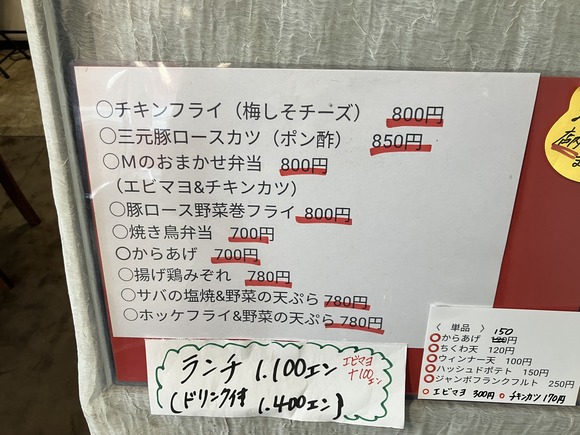 ○チキンフライ（梅しそチーズ） 800円
○三元豚ロースカツ（ポン酢） 850円
○Mのおまかせ弁当 800円
（エビマヨ&チキンカツ）
○豚ロース野菜巻フライ 800円
○焼き鳥弁当 700円
○からあげ 700円
○揚げ鶏みぞれ 780円
○サバの塩焼&野菜の天ぷら 780円
○ホッケフライ&野菜の天ぷら 780円
ランチ 1.100エン
(ドリンク付 1.400エン)
エビマヨ
+100
エン
〈 単品 〉
○からあげ 150円
○ちくわ天 120円
○ウィンナー天 100円
○ハッシュドポテト 150円
○ジャンボフランクフルト 250円
○エビマヨ 300円 ○チキンカツ 170円